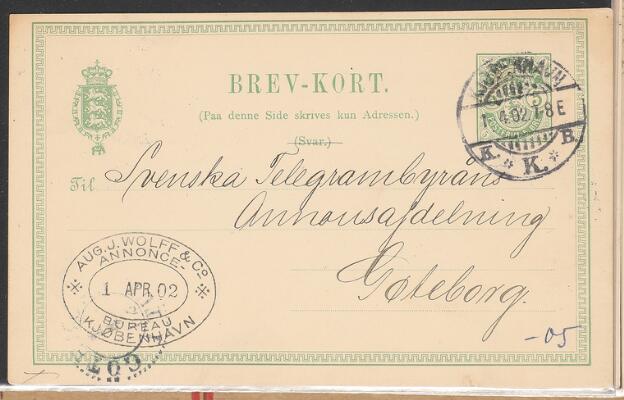 BREV-KORT.
(Paa denne Side skrives kun Adressen.)
(Svar.)
KJØBENHAVN
1.4.02.7-8E
K. K. B.
Til Svenska Telegrambyråns
Annonsafdelning
Göteborg.
AUG. J. WOLFF & Co
ANNONCE-
1 APR. 02
BUREAU
KJØBENHAVN
-05